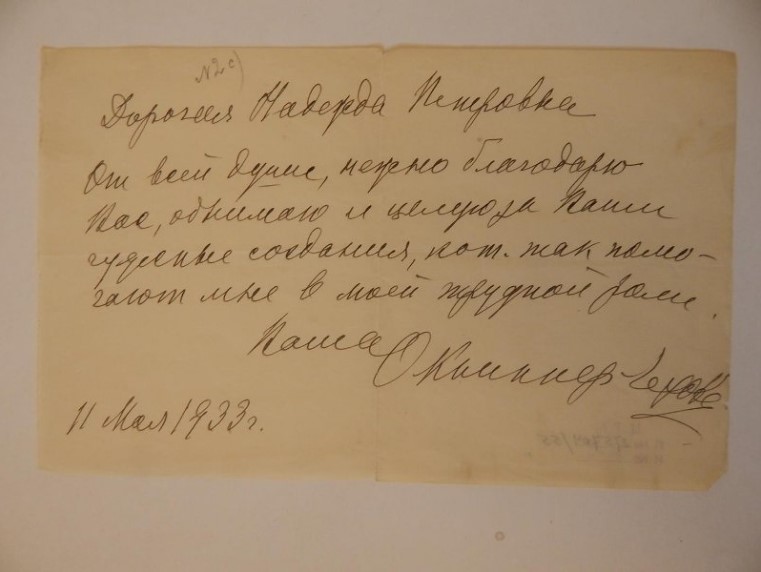 N2c)
Дорогая Надежда Петровна
От всей души, нежно благодарю
Вас, обнимаю и целую за Ваши
чудесные создания, кот. так помо-
гают мне в моей трудной роли.
Ваша О Книппер-Чехова
11 Мая 1933г.